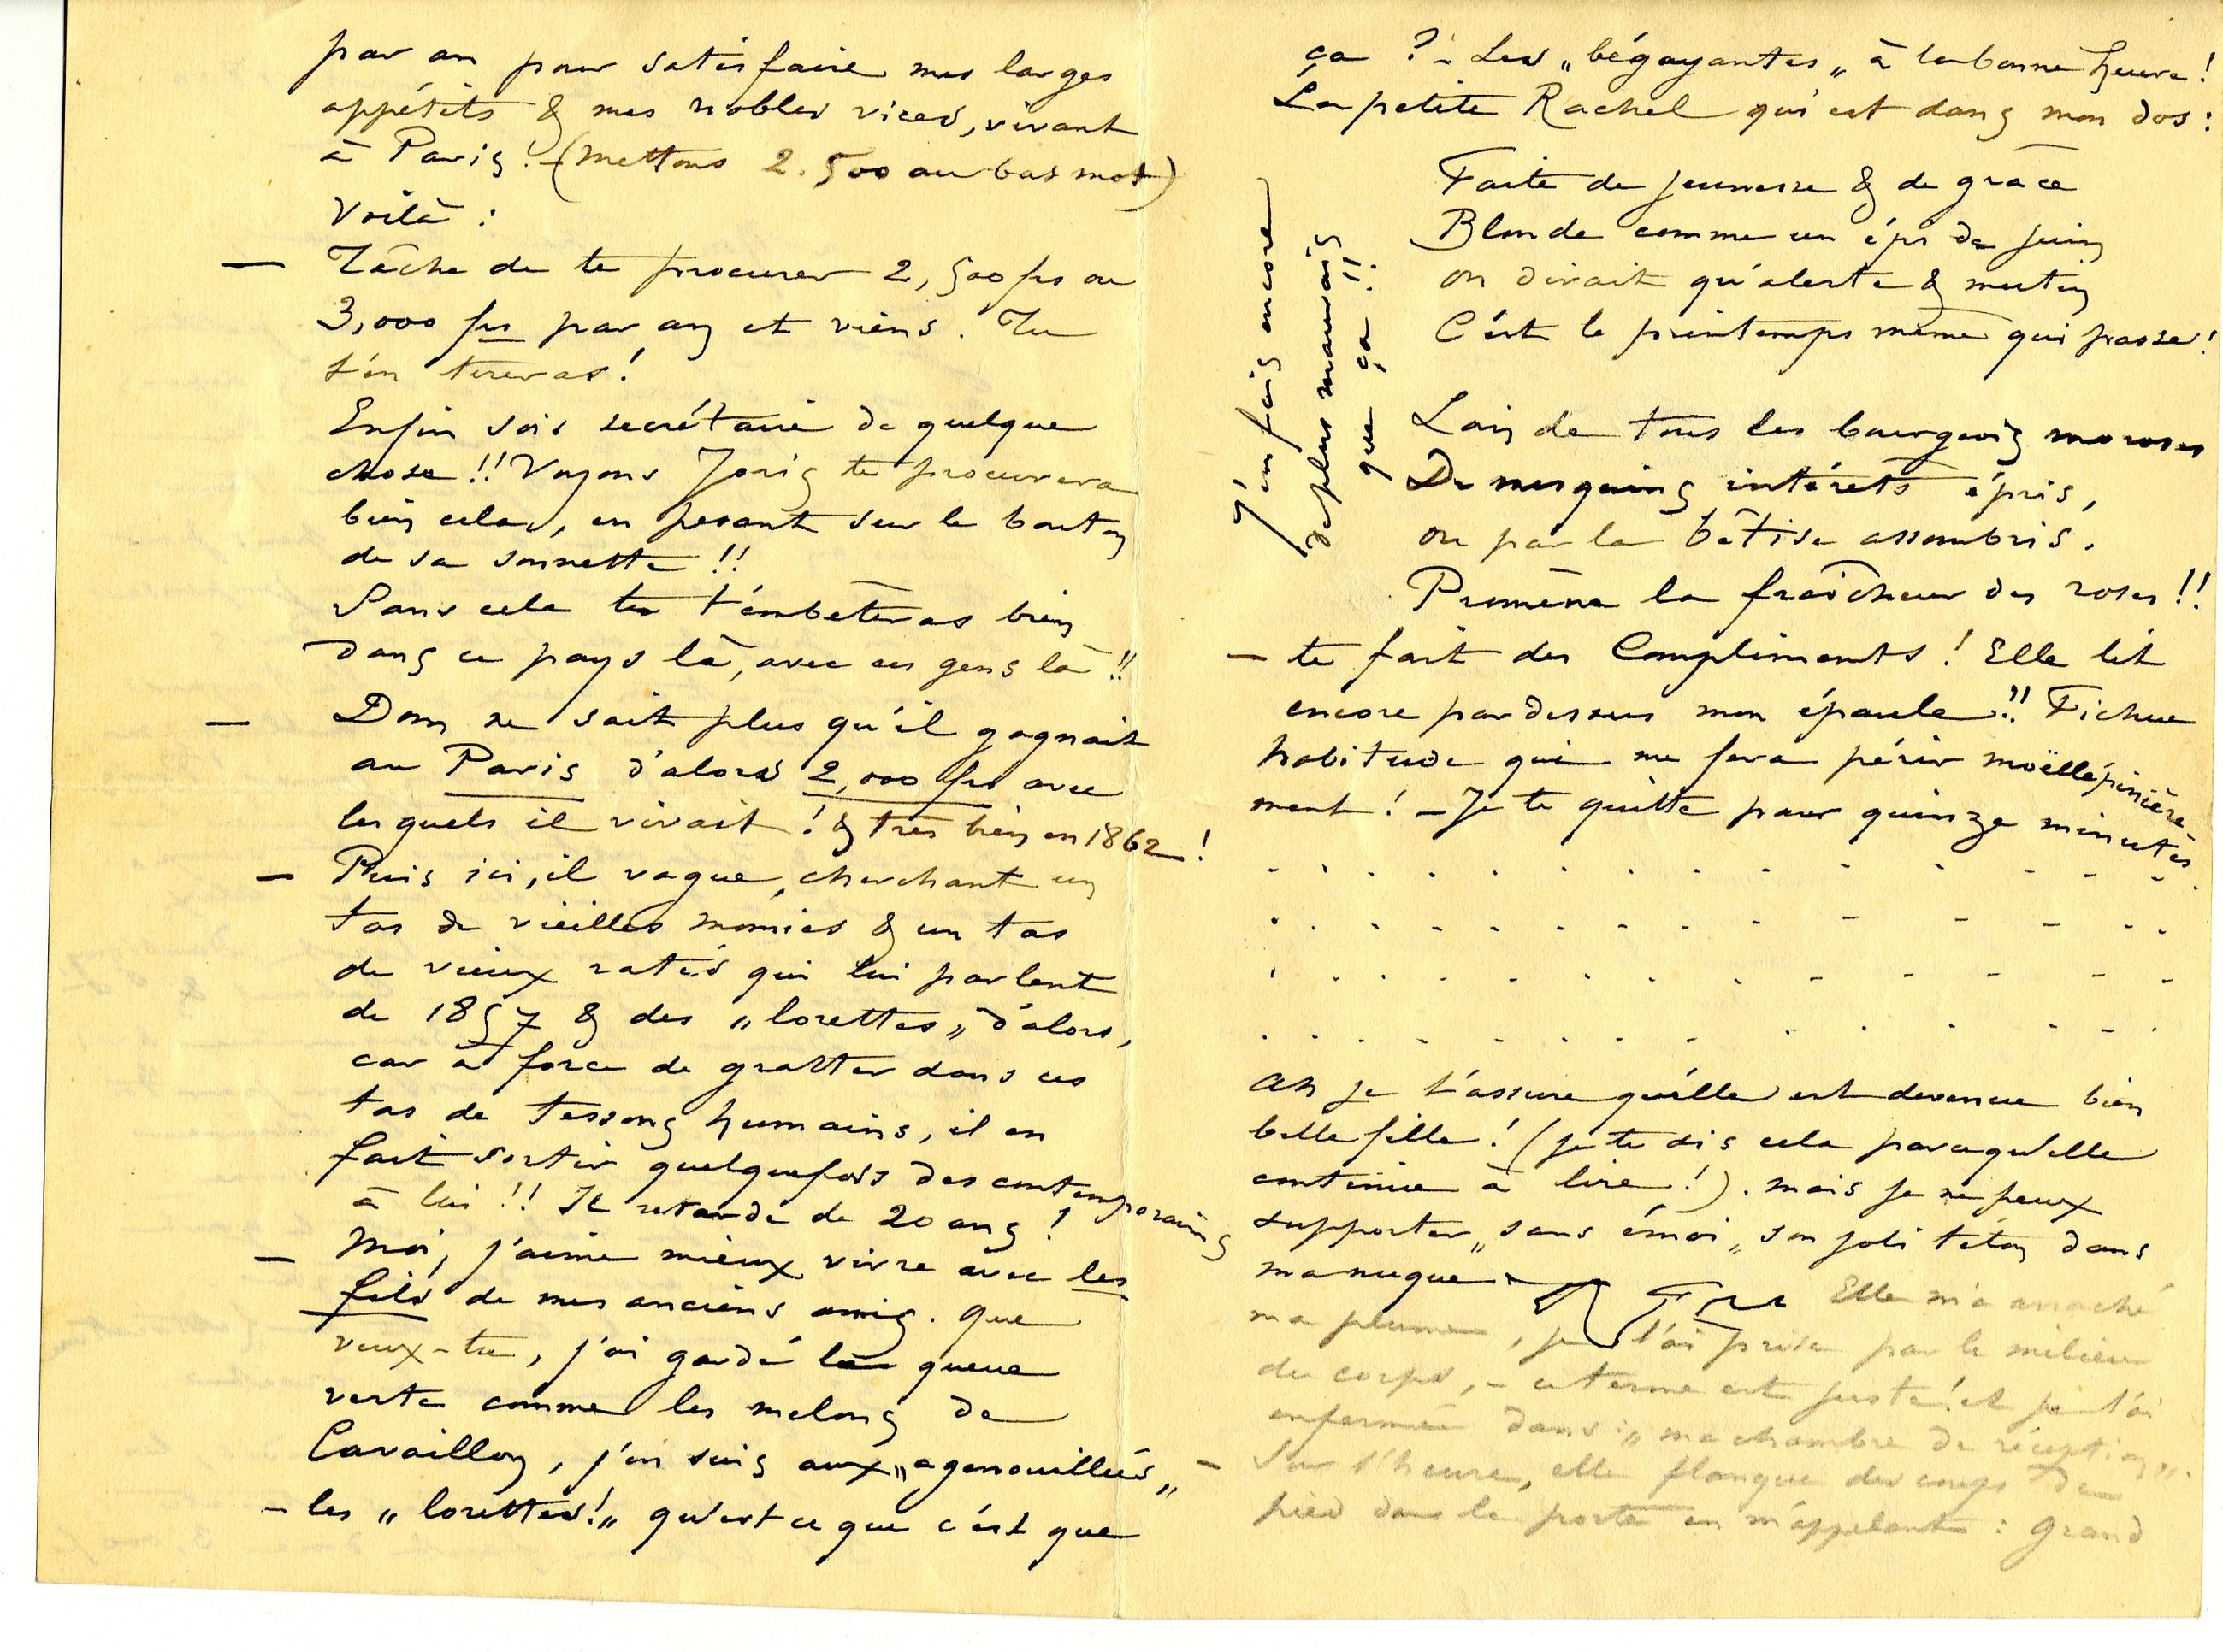 par an pour satisfaire mes larges
appétits & mes nobles vices, vivant
à Paris. – (mettons 2.500 au bas mot)
Voilà :
— Tâche de te procurer 2,500 frs ou
3,000 frs par an et viens. Tu
t'en tireras !
Enfin sois secrétaire de quelque
chose !! Voyons Joris te procurera
bien cela, en pesant sur le bouton
de sa sonnette !!
Sans cela tu t'embêteras bien
dans ce pays là, avec ces gens là !!
— Dom ne sait plus qu'il gagnait
au Paris d'alors 2,000 frs avec
lesquels il vivait ! & très bien en 1862 !
— Puis ici, il vague, cherchant un
tas de vieilles momies & un tas
de vieux ratés qui lui parlent
de 1857 & des „lorettes„ d'alors,
car à force de gratter dans ces
tas de tessons humains, il en
fait sortir quelquefois des contemporains
à lui !! Il retarde de 20 ans !
— Moi, j'aime mieux vivre avec les
fils de mes anciens amis. Que
veux-tu, j'ai gardé la queue
verte comme les melons de
Cavaillon, j'en suis aux „agenouillées„
– les „lorettes!„ qu'est ce que c'est que
ça ? – Les „bégayantes„ à la bonne heure !
La petite Rachel qui est dans mon dos :
Faite de jeunesse & de grâce
Blonde comme un épi de juin
on dirait qu'alerte & mutin
C'est le printemps même qui passe !
Loin de tous les bourgeois moroses
De mesquins intérêts épris,
ou par la bêtise assombris.
Promène la fraîcheur des roses !!
J'en fais encore
de plus mauvais
que ça !!
– te fait des Compliments ! Elle lit
encore pardessus mon épaule !! Fichue
habitude qui me fera périr moëllépinière-
ment ! – Je te quitte pour quinze minutes
. . . . . . . . . . . . . . .
. . . . . . . . . . . . . . .
. . . . . . . . . . . . . . .
. . . . . . . . . . . . . . .
Ah je t'assure qu'elle est devenue bien
belle fille ! (je te dis cela parcequ'elle
continue à lire !). mais je ne peux
supporter „sans émoi„ son joli téton dans
ma nuque Elle m'a arraché
ma plume, je l'ai prise par le milieu
du corps, – ce terme est juste ! et je l'ai
enfermée dans : „ma chambre de réception„.
– Sur l'heure, elle flanque des coups de
pied dans la porte en m'appelant : Grand